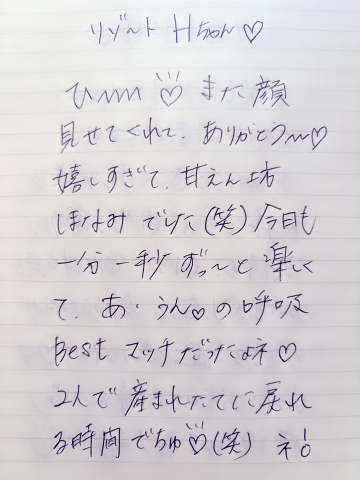 リゾート Hちゃん♡
ひ〜〜♡また顔
見せてくれて、ありがとう〜♡
嬉しすぎて、甘えん坊
ほなみでした(笑)今日も
一分一秒ずっ〜と楽しく
て、あ・うん♡の呼吸
Bestマッチだったよネ♡
2人で産まれたてに戻れ
る時間でちゅ♡(笑)ネ!